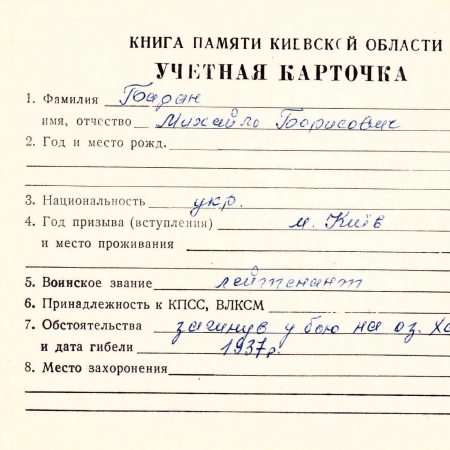 КНИГА ПАМЯТИ КИЕВСКОЙ ОБЛАСТИ
УЧЕТНАЯ КАРТОЧКА
1. Фамилия Баран
имя, отчество Михайло Борисович
2. Год и место рожд.
3. Национальность укр.
4. Год призыва (вступления) м. Київ
и место проживания
5. Воинское звание лейтенант
6. Принадлежность к КПСС, ВЛКСМ
7. Обстоятельства загинув у бою на оз. Ха
и дата гибели 1937р.
8. Место захоронения